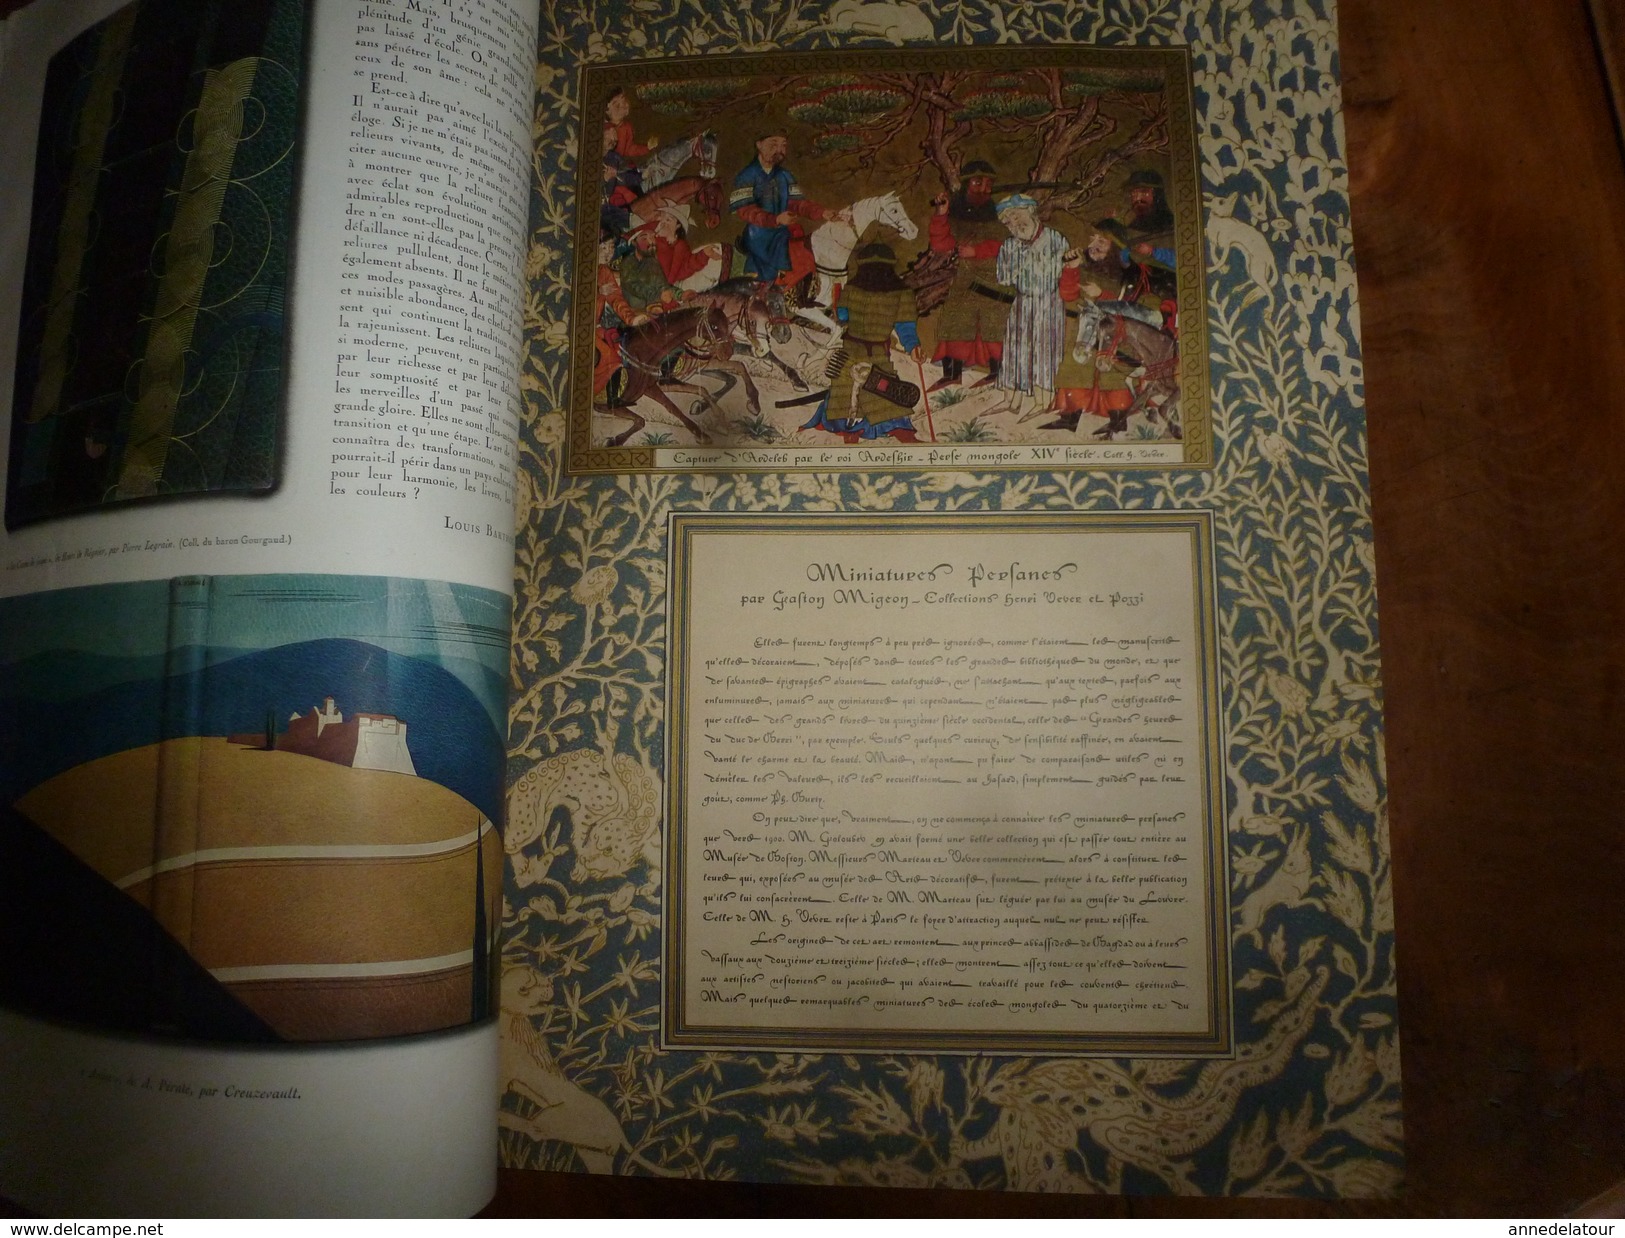 même. Mais, brusquement
plénitude d'un génie grandissant,
pas laissé d'école. On a pillé
sans pénétrer les secrets de son art,
ceux de son âme : cela ne s'apprend
se prend.
Est-ce à dire qu'avec lui la reliure
Il n'aurait pas aimé l'excès d'un
éloge. Si je ne m'étais pas interdit de
relieurs vivants, de même que je
citer aucune œuvre, je n'aurais pas
à montrer que la reliure française
avec éclat son évolution artistique
admirables reproductions que cet
dre n'en sont-elles pas la preuve ?
défaillance ni décadence. Certes, les
reliures pullulent, dont le métier
également absents. Il ne faut pas
ces modes passagères. Au milieu d'une
et nuisible abondance, des chefs-d'œ
sent qui continuent la tradition
la rajeunissent. Les reliures laquées
si moderne, peuvent, en particulier
par leur richesse et par leur
leur somptuosité et par leur
les merveilles d'un passé qui
grande gloire. Elles ne sont elles-mêmes
transition et qu'une étape. L'art de la
connaîtra des transformations, mais
pourrait-il périr dans un pays
pour leur harmonie, les livres, les
les couleurs ?
LOUIS BARTHOU
de Henri de Régnier, par Pierre Legrain. (Coll. du baron Gourgaud.)
par Creuzevault.
Capture d'Ardeleb par le roi Ardeshir - Perse mongole XIVe siècle. Coll. H. Vever.
Miniatures Persanes
par Gaston Migeon - Collections Henri Vever et Pozzi
Elles furent longtemps à peu près ignorées, comme l'étaient les manuscrits
qu'elles décoraient, déposés dans toutes les grandes bibliothèques du monde, et que
de savants épigraphes avaient catalogués, ne s'attachant qu'aux textes, parfois aux
enluminures, jamais aux miniatures qui cependant n'étaient pas plus négligeables
que celles des grands livres du quinzième siècle occidental, celle des "Grandes heures
du duc de Berri", par exemple. Seuls quelques curieux, de sensibilité raffinée, en avaient
vanté le charme et la beauté. Mais, n'ayant pu faire de comparaisons utiles ni en
démêler les valeurs, ils les recueillaient au hasard, simplement guidés par leur
goût, comme Ph. Burty.
On peut dire que, vraiment, on ne commença à connaître les miniatures persanes
que vers 1900. M. Goloubev en avait formé une belle collection qui est passée tout entière au
Musée de Boston. Messieurs Marteau et Vever commencèrent alors à constituer les
leurs qui, exposées au musée des Arts décoratifs, furent prétexte à la belle publication
qu'ils lui consacrèrent. Celle de M. Marteau fut léguée par lui au musée du Louvre.
Celle de M. H. Vever reste à Paris le foyer d'attraction auquel nul ne peut résister
Les origines de cet art remontent aux princes abbassides de Bagdad ou à leurs
vassaux aux douzième et treizième siècles ; elles montrent assez tout ce qu'elles doivent
aux artistes nestoriens ou jacobites qui avaient travaillé pour les couvents chrétiens.
Mais quelques remarquables miniatures des écoles mongoles du quatorzième et du
www.delcampe.net
annedelatour